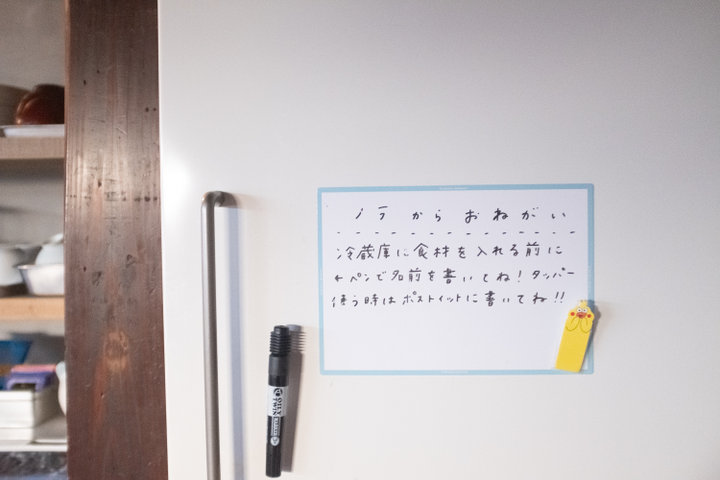 ノラ からおねがい
冷蔵庫に食材を入れる前に
←ペンで名前を書いてね!タッパー
使う時はポストイットに書いてね!!
OILY
TWIN
MARKER